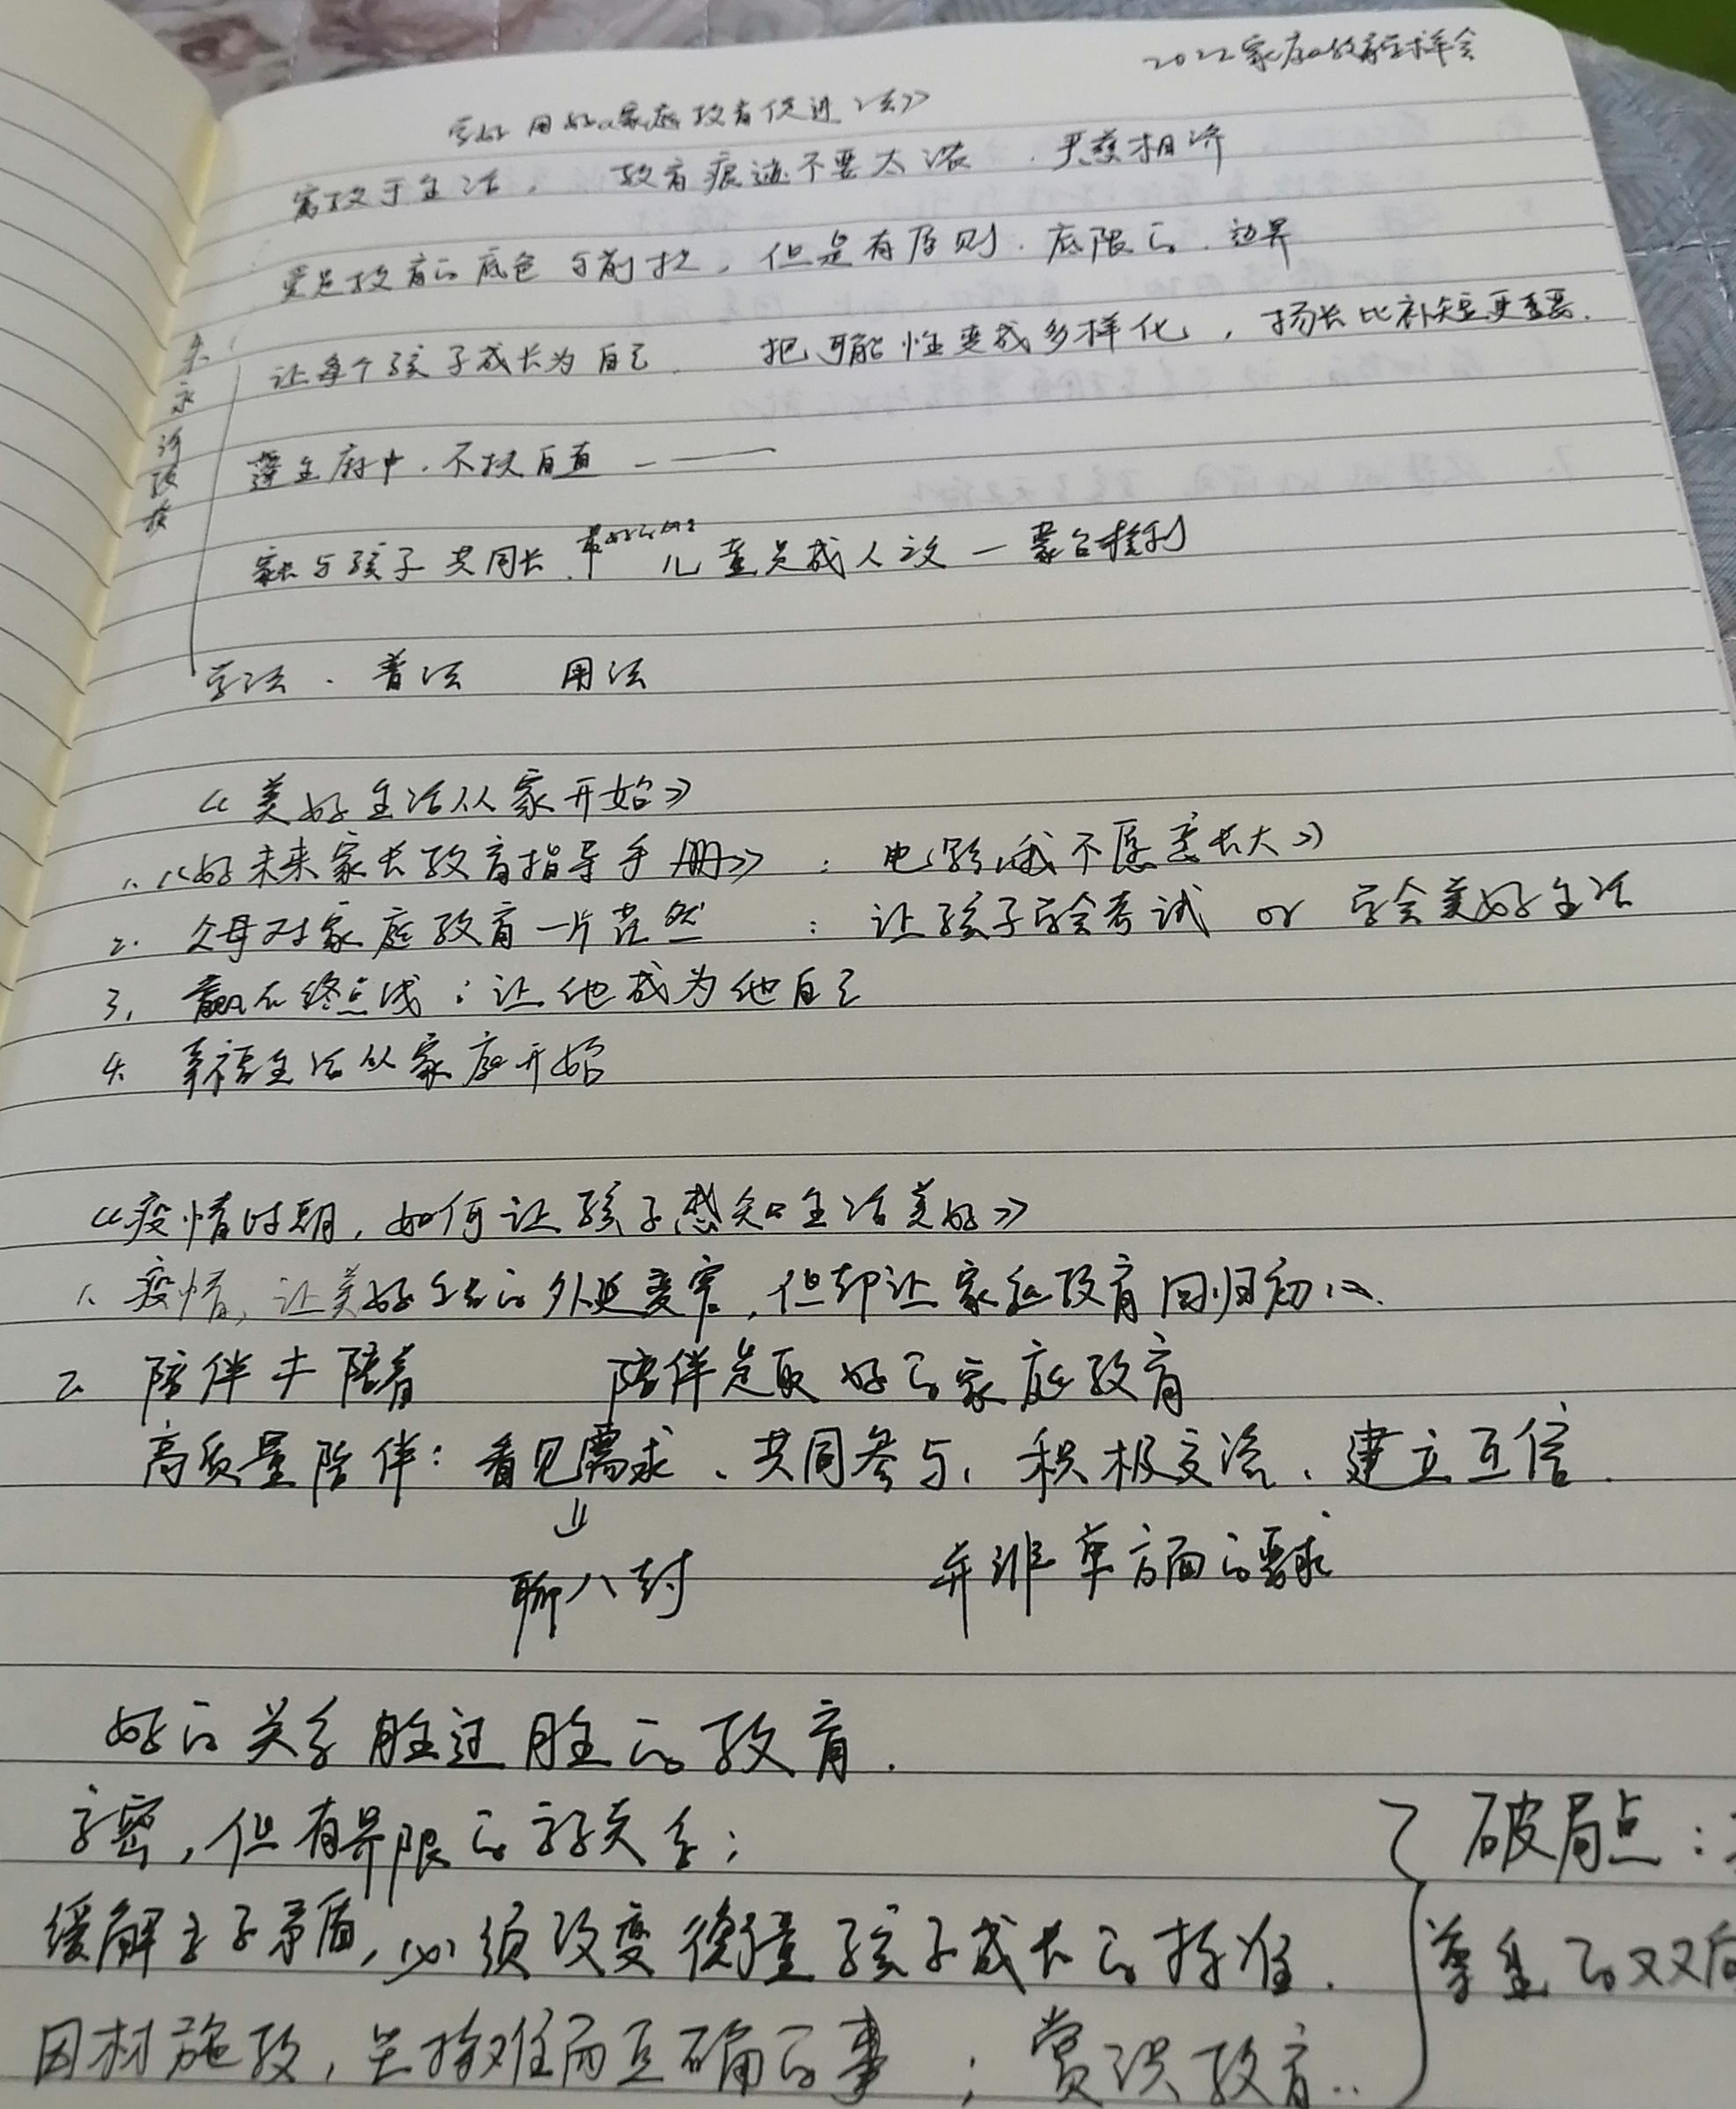 2022家庭教育学术年会
学好 用好《家庭教育促进法》
寓教于生活， 教育痕迹不要太浓 . 严慈相济
爱是教育的底色与前提，但是有原则. 底限的. 边界
让每个孩子成长为自己. 把可能性变成多样化，扬长比补短更重要.
朱永新教授
蓬生麻中. 不扶自直 ——
家长与孩子共同长. 最好的 儿童是成人之父 — 蒙台梭利
学法. 普法 用法
《美好生活从家开始》
1.《好未来家长教育指导手册》：电影《我不愿意长大》
2. 父母对家庭教育一片茫然 ：让孩子学会考试 or 学会美好生活
3. 赢在终点线：让他成为他自己
4. 幸福生活从家庭开始
《疫情时期，如何让孩子感知生活美好》
1. 疫情，让美好生活的外延变窄，但却让家庭教育回归初心.
2. 陪伴≠陪着 陪伴是最好的家庭教育
高质量陪伴：看见需求、共同参与、积极交流、建立互信.
⇓
聊八封 并非单方面的要求
好的关系胜过胜的教育.
亲密，但有界限的亲子关系；
破局点：
缓解亲子矛盾，必须改变衡量孩子成长的标准.
学生的双向
因材施教，是搞难而正确的事 ；赏识教育..